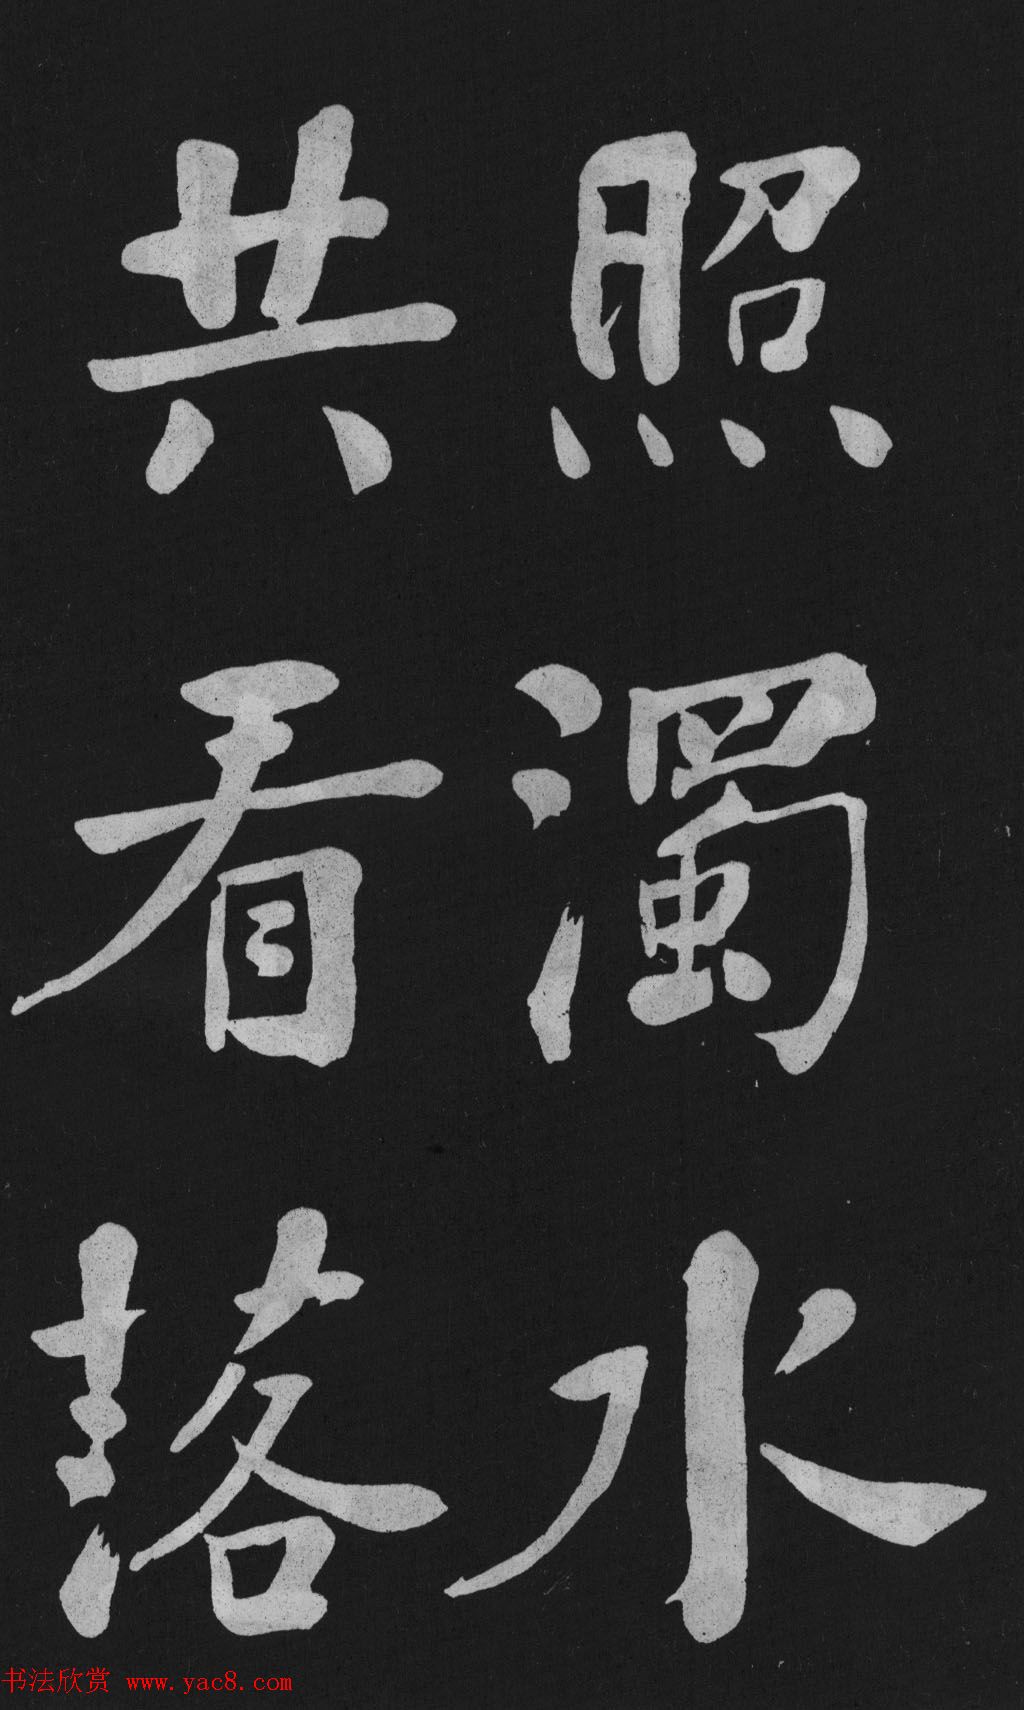 照濁水
共看落
书法欣赏 www.yac8.com